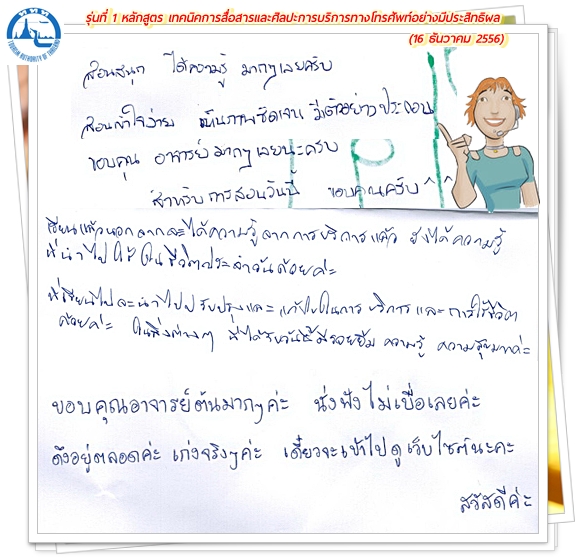 รุ่นที่ 1 หลักสูตร เทคนิคการสื่อสารและศิลปะการบริการทางโทรศัพท์อย่างมีประสิทธิผล
(16 ธันวาคม 2556)
ททท
TOURISM AUTHORITY OF THAILAND
สอนสนุก ได้ความรู้ มากๆเลยครับ
สอนเข้าใจง่าย เห็นภาพชัดเจน มีตัวอย่างประกอบ
ขอบคุณ อาจารย์มากๆเลยนะครับ
สำหรับการสอนวันนี้ ขอบคุณครับ ^^
เรียนแล้วนอกจากจะได้ความรู้จากการบริการแล้ว ยังได้ความรู้
ที่นำไปใช้ในชีวิตประจำวันด้วยค่ะ
ที่เรียนไปจะนำไปปรับปรุงและแก้ไขในการบริการและการใช้ชีวิต
ด้วยค่ะ ในสิ่งต่างๆ ที่ได้รับวันนี้มีรอยยิ้ม ความรู้ ความสุขมากค่ะ
ขอบคุณอาจารย์ต้นมากๆค่ะ นั่งฟังไม่เบื่อเลยค่ะ
ดึงอยู่ตลอดค่ะ เก่งจริงๆค่ะ เดี๋ยวจะเข้าไปดูเว็บไซต์นะคะ
สวัสดีค่ะ